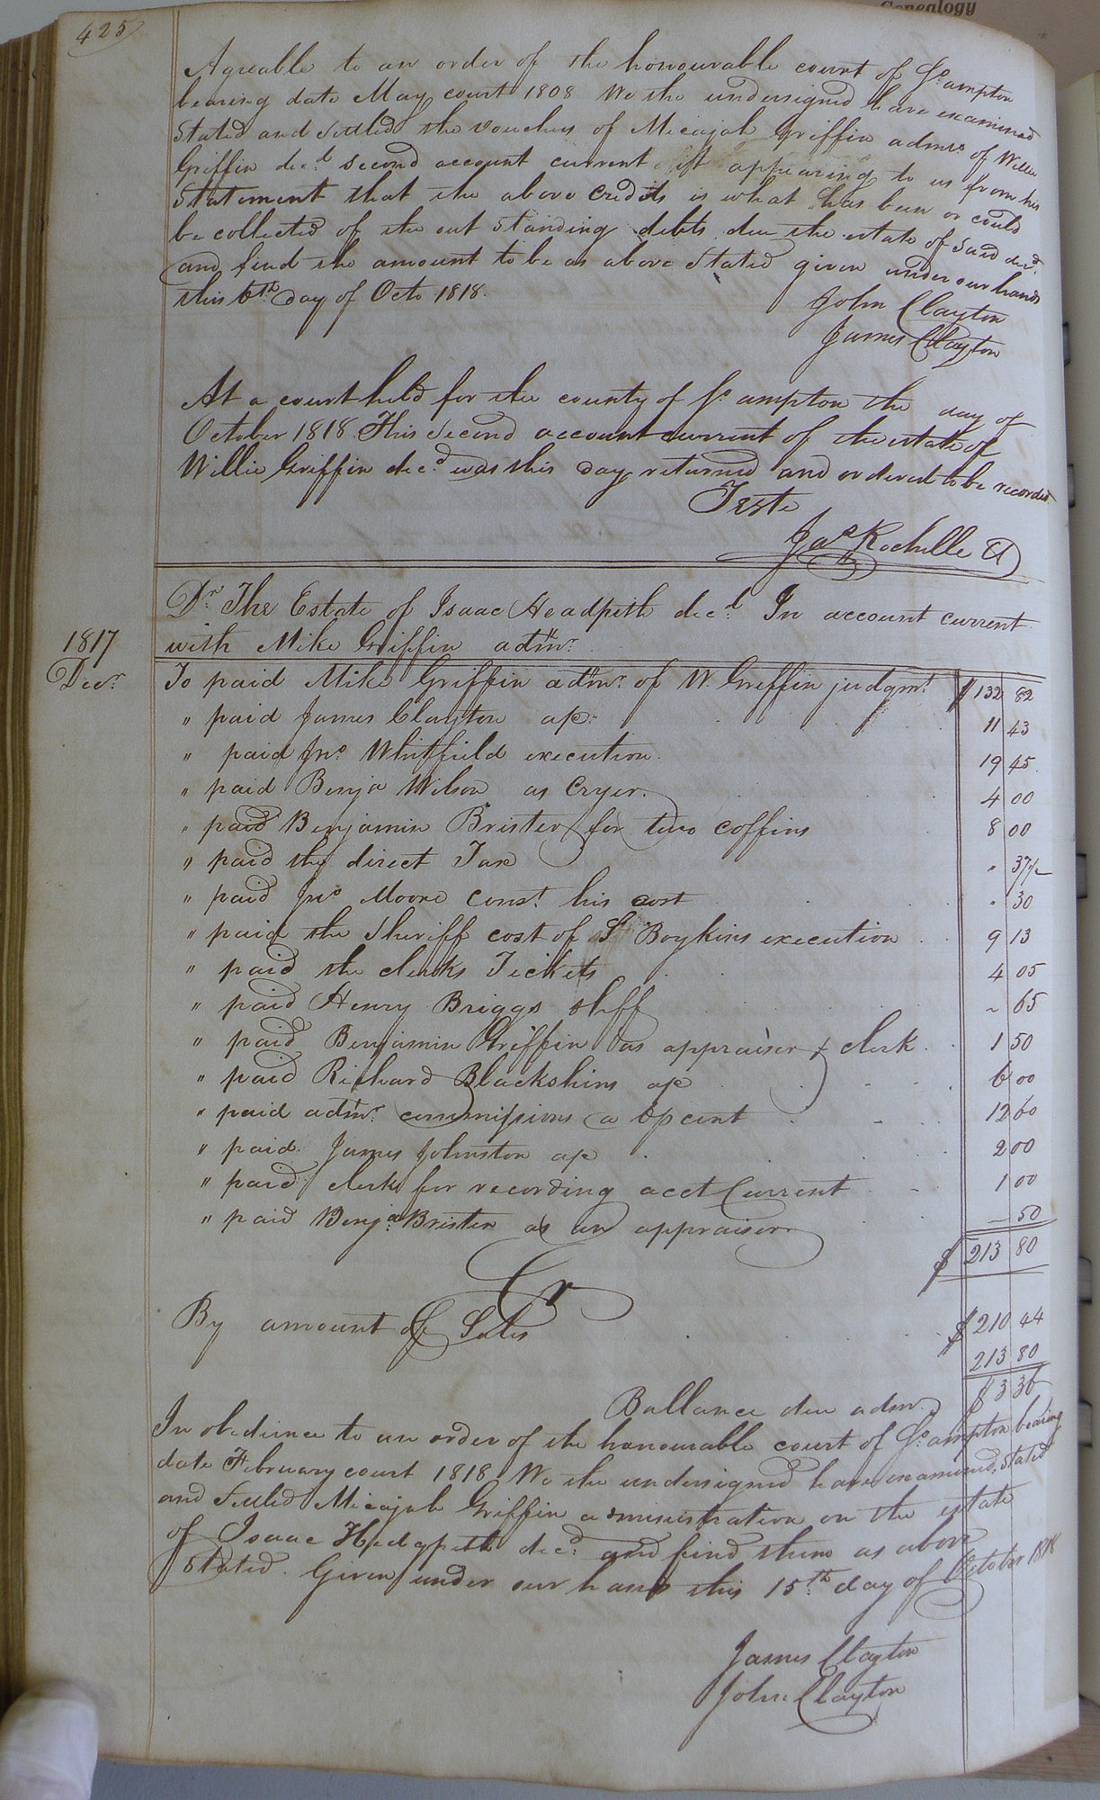 Genealogy
425
Agreable to an order of the honourable court of So ampton
bearing date May court 1808 We the undersigned have examined
Stated and Settled the vouchers of Micajah Griffin admr. of Willie
Griffin decd. second account current it appearing to us from his
Statement that the above Credits is what has been or could
be collected of the out Standing debts due the estate of Said decd.
and find the amount to be as above Stated given under our hands
this 6th day of Octo 1818.
John Clayton
James Clayton
At a court held for the county of So. ampton the day of
October 1818 This Second account current of the estate of
Willie Griffin decd. was this day returned and ordered to be recorded
Teste
Jas Rochelle Cl
Dr. The Estate of Isaac Headpeth decd. In account current
with Mike Griffin admr.
1817
Decr.
To paid Mike Griffin admr. of W. Griffin judgmt. $132 82
" paid James Clayton ap: 11 43
" paid Jno Whitfield execution 19 45
" paid Benja Wilson as Cryer. 4 00
" paid Benjamin Brister for two coffins 8 00
" paid the direct Tax " 37½
" paid Jno Moore const. his cost " 30
" paid the Sheriff cost of Boykins execution 9 13
" paid the clerks Tickets 4 05
" paid Henry Briggs shff ~ 65
" paid Benjamin Griffin as appraiser & clerk 1 50
" paid Richard Blackshins ap 6 00
" paid admr. commissions a 6 p cent 12 60
" paid James Johnston ap 2 00
" paid clerk for recording acct Current 1 00
" paid Benja. Brister as an appraiser — 50
$ 213 80
Cr
By amount of Sales $210 44
213 80
Ballance due admr. $ 3 36
In obedience to an order of the honourable court of So. ampton bearing
date February court 1818 We the undersigned have examined, Stated
and Settled Micajah Griffin administration on the estate
of Isaac Hedgpeth decd. and find them as above
Stated. Given under our hands this 15th day of October 1818
James Clayton
John Clayton